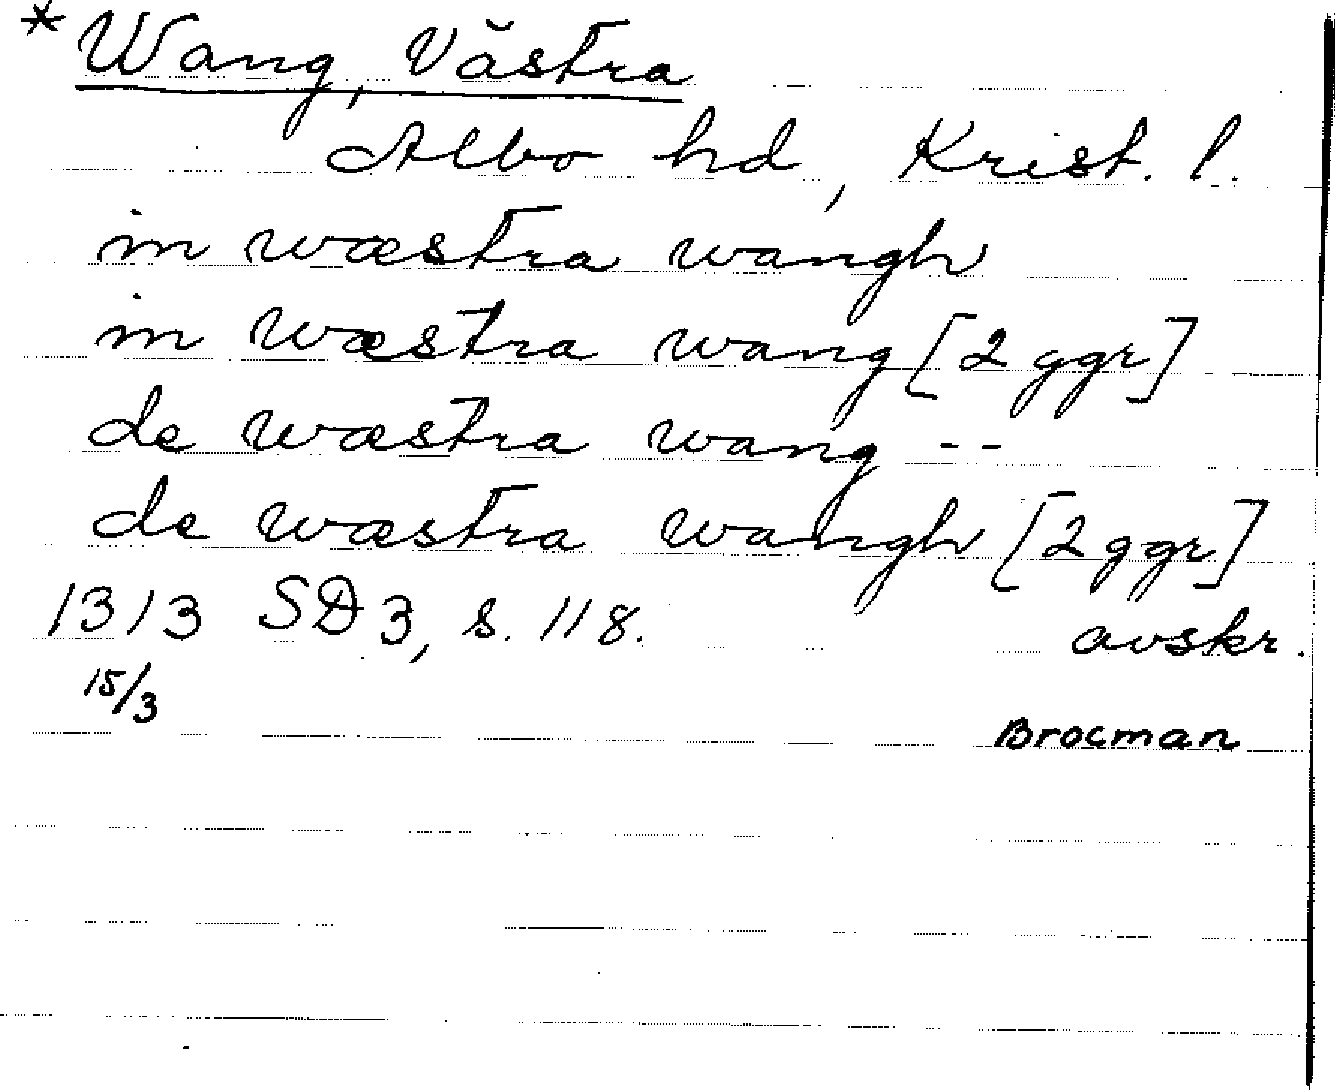 *Wang, Västra
Albo hd, Krist. l.
in wæstra wangh
in wæstra wang [2 ggr]
de wæstra wang --
de wæstra wangh [2 ggr]
1313 SD 3, s. 118. avskr.
15/3
Brocman